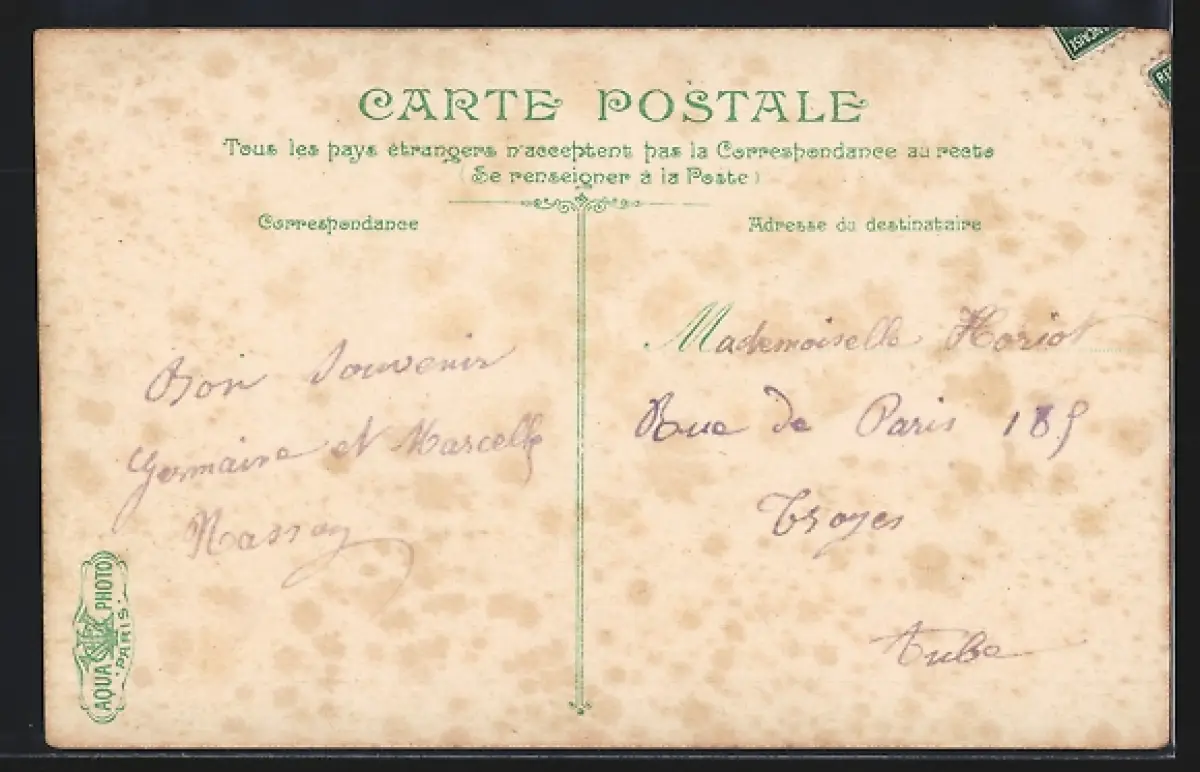 CARTE POSTALE
Tous les pays étrangers n'acceptent pas la Correspondance au recto
(Se renseigner à la Poste)
Correspondance
Adresse du destinataire
Bon Souvenir
Germaine et Marcelle
Massey
Mademoiselle Horiot
Rue de Paris 185
Troyes
Aube
AQUA PHOTO
PARIS